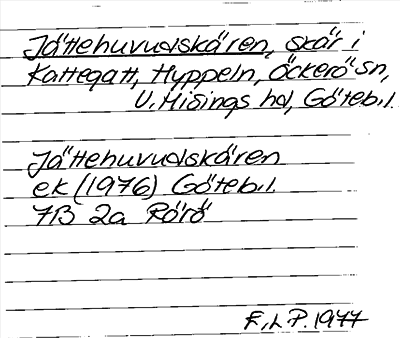 Jättehuvudskären, skär i
Kattegatt, Hyppeln, Öckerö sn,
V. Hisings hd, Göteb. l.
Jättehuvudskären
ek (1976) Göteb. l.
7B 2a Rörö
F. L P. 1977